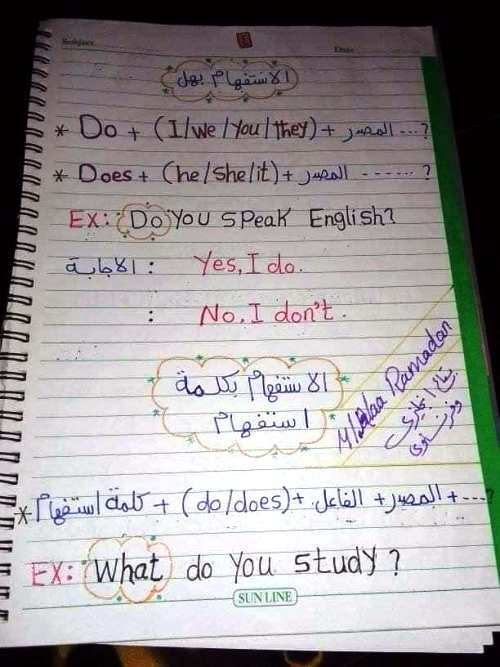 Subject
Date
الاستفهام بهل
* Do + (I/we/you/they) + المصدر ...?
* Does + (he/she/it) + المصدر ......?
EX: Do you speak English?
الاجابة : Yes, I do.
: No, I don't.
الاستفهام بكلمة
استفهام
* كلمة استفهام + (do/does) + الفاعل + المصدر + ...?
EX: What do you study?
Ramadan
SUN LINE